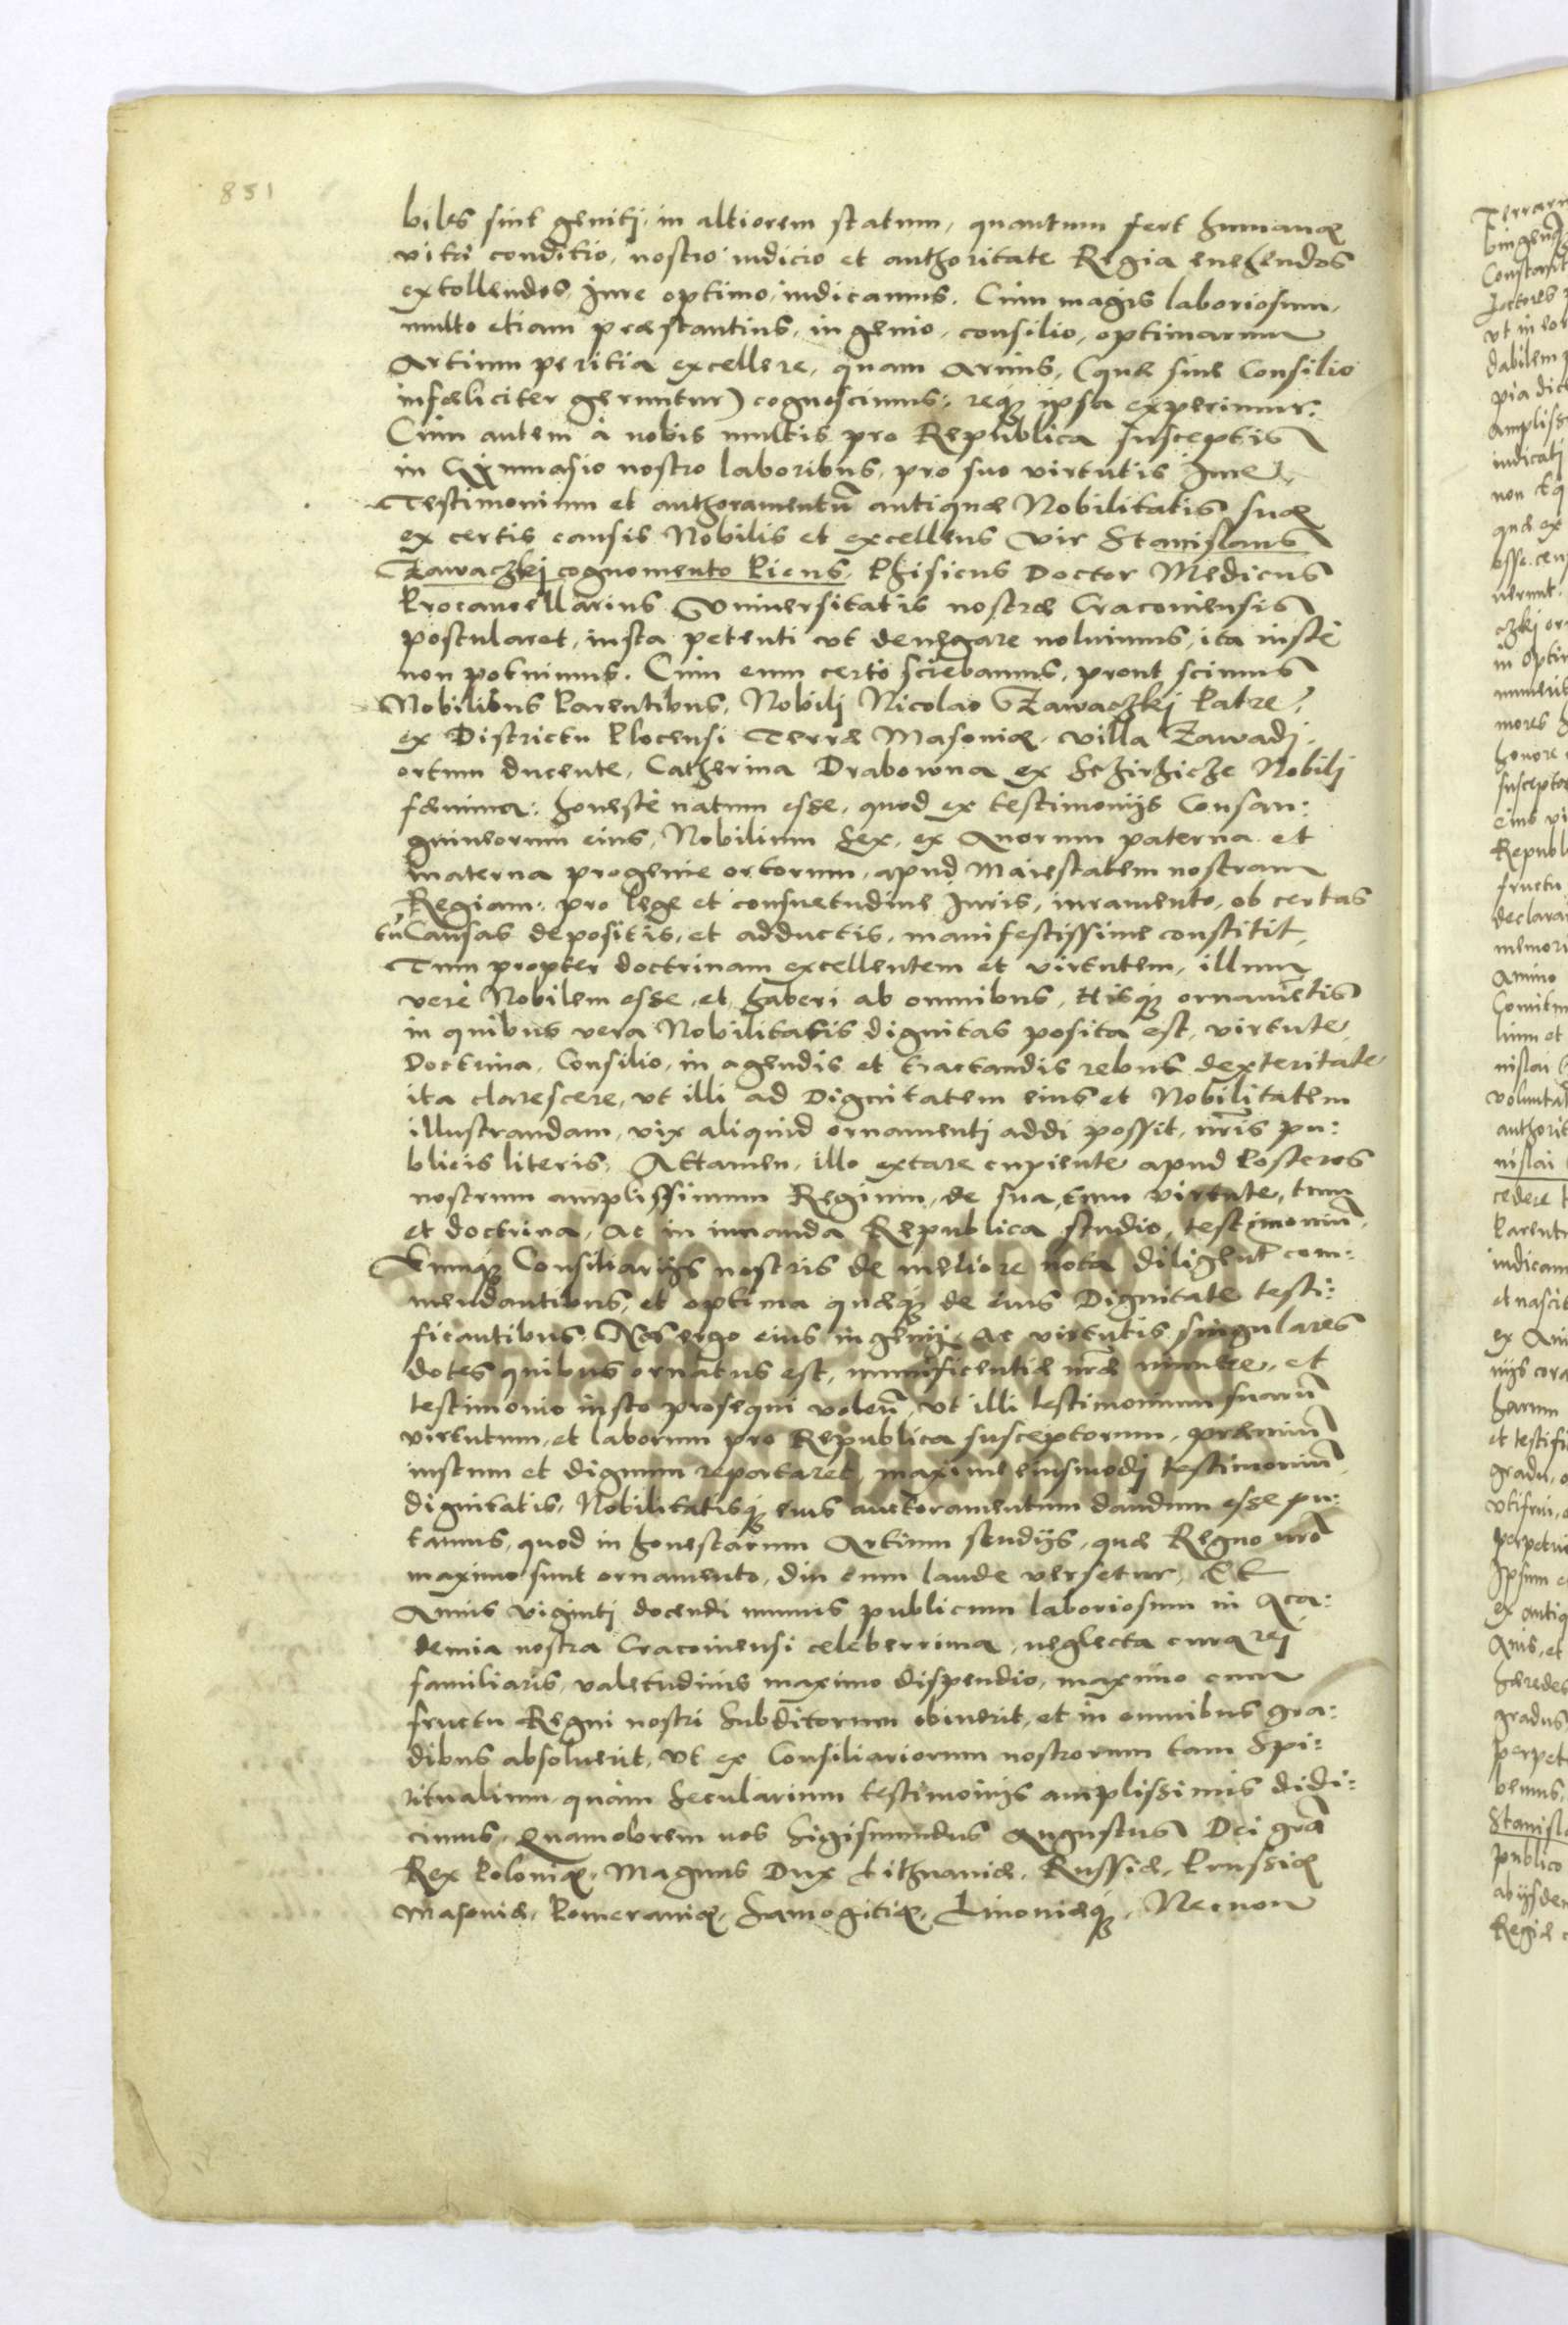 831
biles sint genitj, in altiorem statum, quantum fert humanæ
vitæ conditio, nostro iudicio et authoritate Regia euehendos
extollendos, Jure optimo, iudicamus. Cùm magis laboriosum,
multo etiam præstantius, ingenio, consilio, optimarum
Artium peritia excellere, quam Armis, (quæ sine Consilio
infæliciter geruntur) cognoscimus: reqꝫ ipsa experimur:
Cùm autem à nobis multis pro Republica susceptis
in Gymnasio nostro laboribus, pro suo virtutis Jure,
Testimonium et authoramentũ antiquæ Nobilitatis suæ
ex certis causis Nobilis et excellens Vir Stanislaus
Zawaczkj cognomento Picus, Phisicus Doctor Medicus
Procancellarius Vniuersitatis nostræ Cracouiensis
postularet, iusta petenti vt denegare noluimus, ita iustè
non potuimus. Cùm eum certò sciebamus, prout scimus
Nobilibus Parentibus, Nobilj Nicolao Zawaczkj Patre,
ex Districtu Plocensi Terræ Masouiæ, villa Zawadj,
ortum ducente, Catherina Drabowna ex Nobilj
fæmina: honestè natum esse, quod ex testimonijs Consan:
guineorum eius, Nobilium sex, ex Auorum paterna et
materna progenie ortorum, apud Maiestatem nostram
Regiam: pro lege et consuetudine Juris, iuramento, ob certas
tũ Causas depositis, et adductis, manifestissime constitit,
Tum propter doctrinam excellentem et virtutem, illum
verè Nobilem esse, et haberi ab omnibus, Hisqꝫ ornamẽtis
in quibus vera Nobilitatis dignitas posita est, virtute,
Doctrina, Consilio, in agendis et tractandis rebus dexteritate
ita clarescere, vt illi ad Dignitatem eius et Nobilitatem
illustrandam, vix aliquid ornamentj addi possit, nr̃is pu:
blicis literis, Attamen, illo extare cupiente apud Posteros
nostrum amplissimum Regium, de sua, cum virtute, tum
et doctrina, ac in iuuanda Republica studio, testimoniũ,
Eumqꝫ Consiliarijs nostris de meliore nota diligent com:
mendantibus, et optima quæqꝫ de eius Dignitate testi:
ficantibus. Nos ergo eius ingenij, ac virtutis singulares
dotes quibus ornatus est, munificentiæ nr̃æ munere, et
testimonio iusto prosequi volen̄, vt illi testimonium suarũ
virtutum, et laborum pro Republica susceptorum, præmiũ
iustum et dignum reportaret, maxime eiusmodj testimoniũ
dignitatis, Nobilitatisqꝫ eius auctoramentum dandum esse pu:
tamus, quod in honestarum Artium studijs, quæ Regno nr̃o
maximo sunt ornamento, diu cum laude versetur, Et
Annis vigintj docendi munus publicum laboriosum in Aca:
demia nostra Cracouiensi celeberrima, neglecta cura rej
familiaris, valetudinis maximo dispendio, maximo cum
fructu Regni nostri Subditorum obiuerit, et in omnibus gra:
dibus absoluerit, Vt ex Consiliariorum nostrorum tam Spi:
ritualium quàm Secularium testimonijs amplissimis didi:
cimus. Quamobrem nos Sigismundus Augustus Dei grã
Rex Poloniæ, Magnus Dux Lithuaniæ, Russiæ, Prussiæ
Masouiæ, Pomeraniæ, Samogitiæ, Liuoniæqꝫ, Necnon